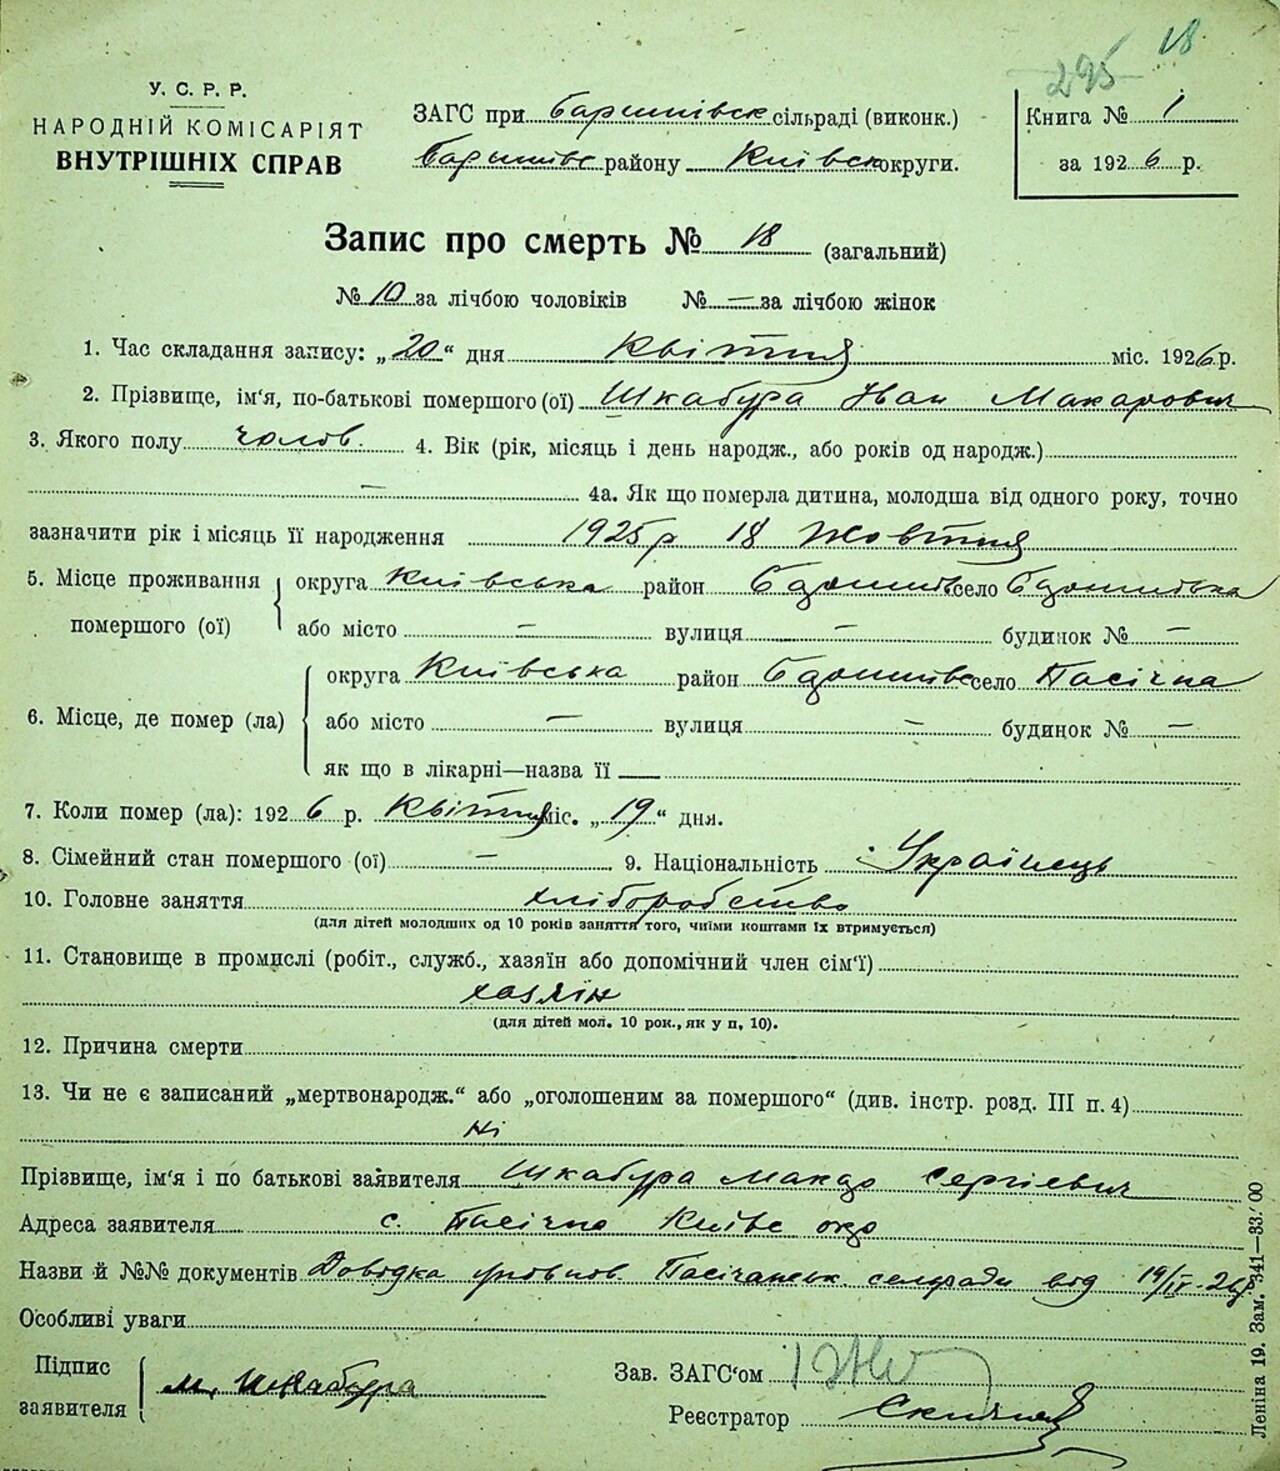 18
295
У. С. Р. Р.
НАРОДНІЙ КОМІСАРІЯТ
ВНУТРІШНІХ СПРАВ
ЗАГС при Баришівск сільраді (виконк.)
Баришівс району Київск округи.
Книга № 1
за 1926 р.
Запис про смерть № 18 (загальний)
№ 10 за лічбою чоловіків № — за лічбою жінок
1. Час складання запису: „20“ дня Квітня міс. 1926 р.
2. Прізвище, ім'я, по-батькові помершого (ої) Шкабура Іван Макарович
3. Якого полу чолов. 4. Вік (рік, місяць і день народж., або років од народж.)
— 4а. Як що померла дитина, молодша від одного року, точно
зазначити рік і місяць її народження 1925 р 18 Жовтня
5. Місце проживання помершого (ої) округа Київська район село
або місто — вулиця — будинок № —
6. Місце, де помер (ла) округа Київська район село Пасічна
або місто — вулиця — будинок № —
як що в лікарні—назва її —
7. Коли помер (ла): 1926 р. Квітня міс. „19“ дня.
8. Сімейний стан помершого (ої) — 9. Національність Українець
10. Головне заняття хліборобство
(для дітей молодших од 10 років заняття того, чиїми коштами їх втримується)
11. Становище в промислі (робіт., служб., хазяїн або допомічний член сім'ї)
хазяїн
(для дітей мол. 10 рок., як у п, 10).
12. Причина смерти
13. Чи не є записаний „мертвонародж.“ або „оголошеним за помершого“ (див. інстр. розд. III п. 4)
ні
Прізвище, ім'я і по батькові заявителя Шкабура Макар Сергієвич
Адреса заявителя с. Пасічна Київс окр
Назви й №№ документів Довідка Пасічанськ. сельради від 19/IV-26р
Особливі уваги
Підпис заявителя М. Шкабура
Зав. ЗАГС'ом
Реєстратор
Леніна 19. Зам. 341—33.000